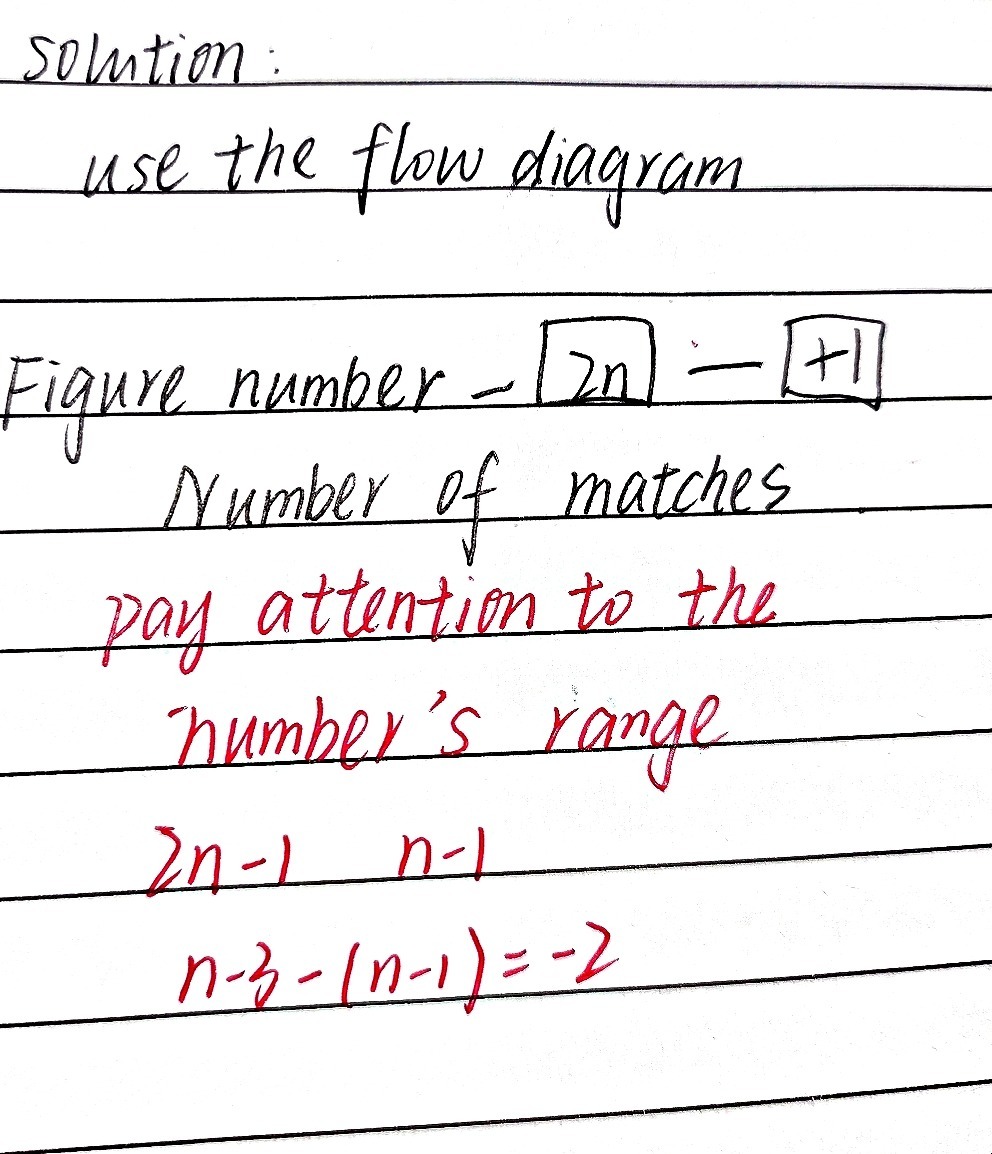 solution:
use the flow diagram
Figure number - 2n — +1
Number of matches
pay attention to the
number's range
2n-1 n-1
n-3-(n-1)=-2